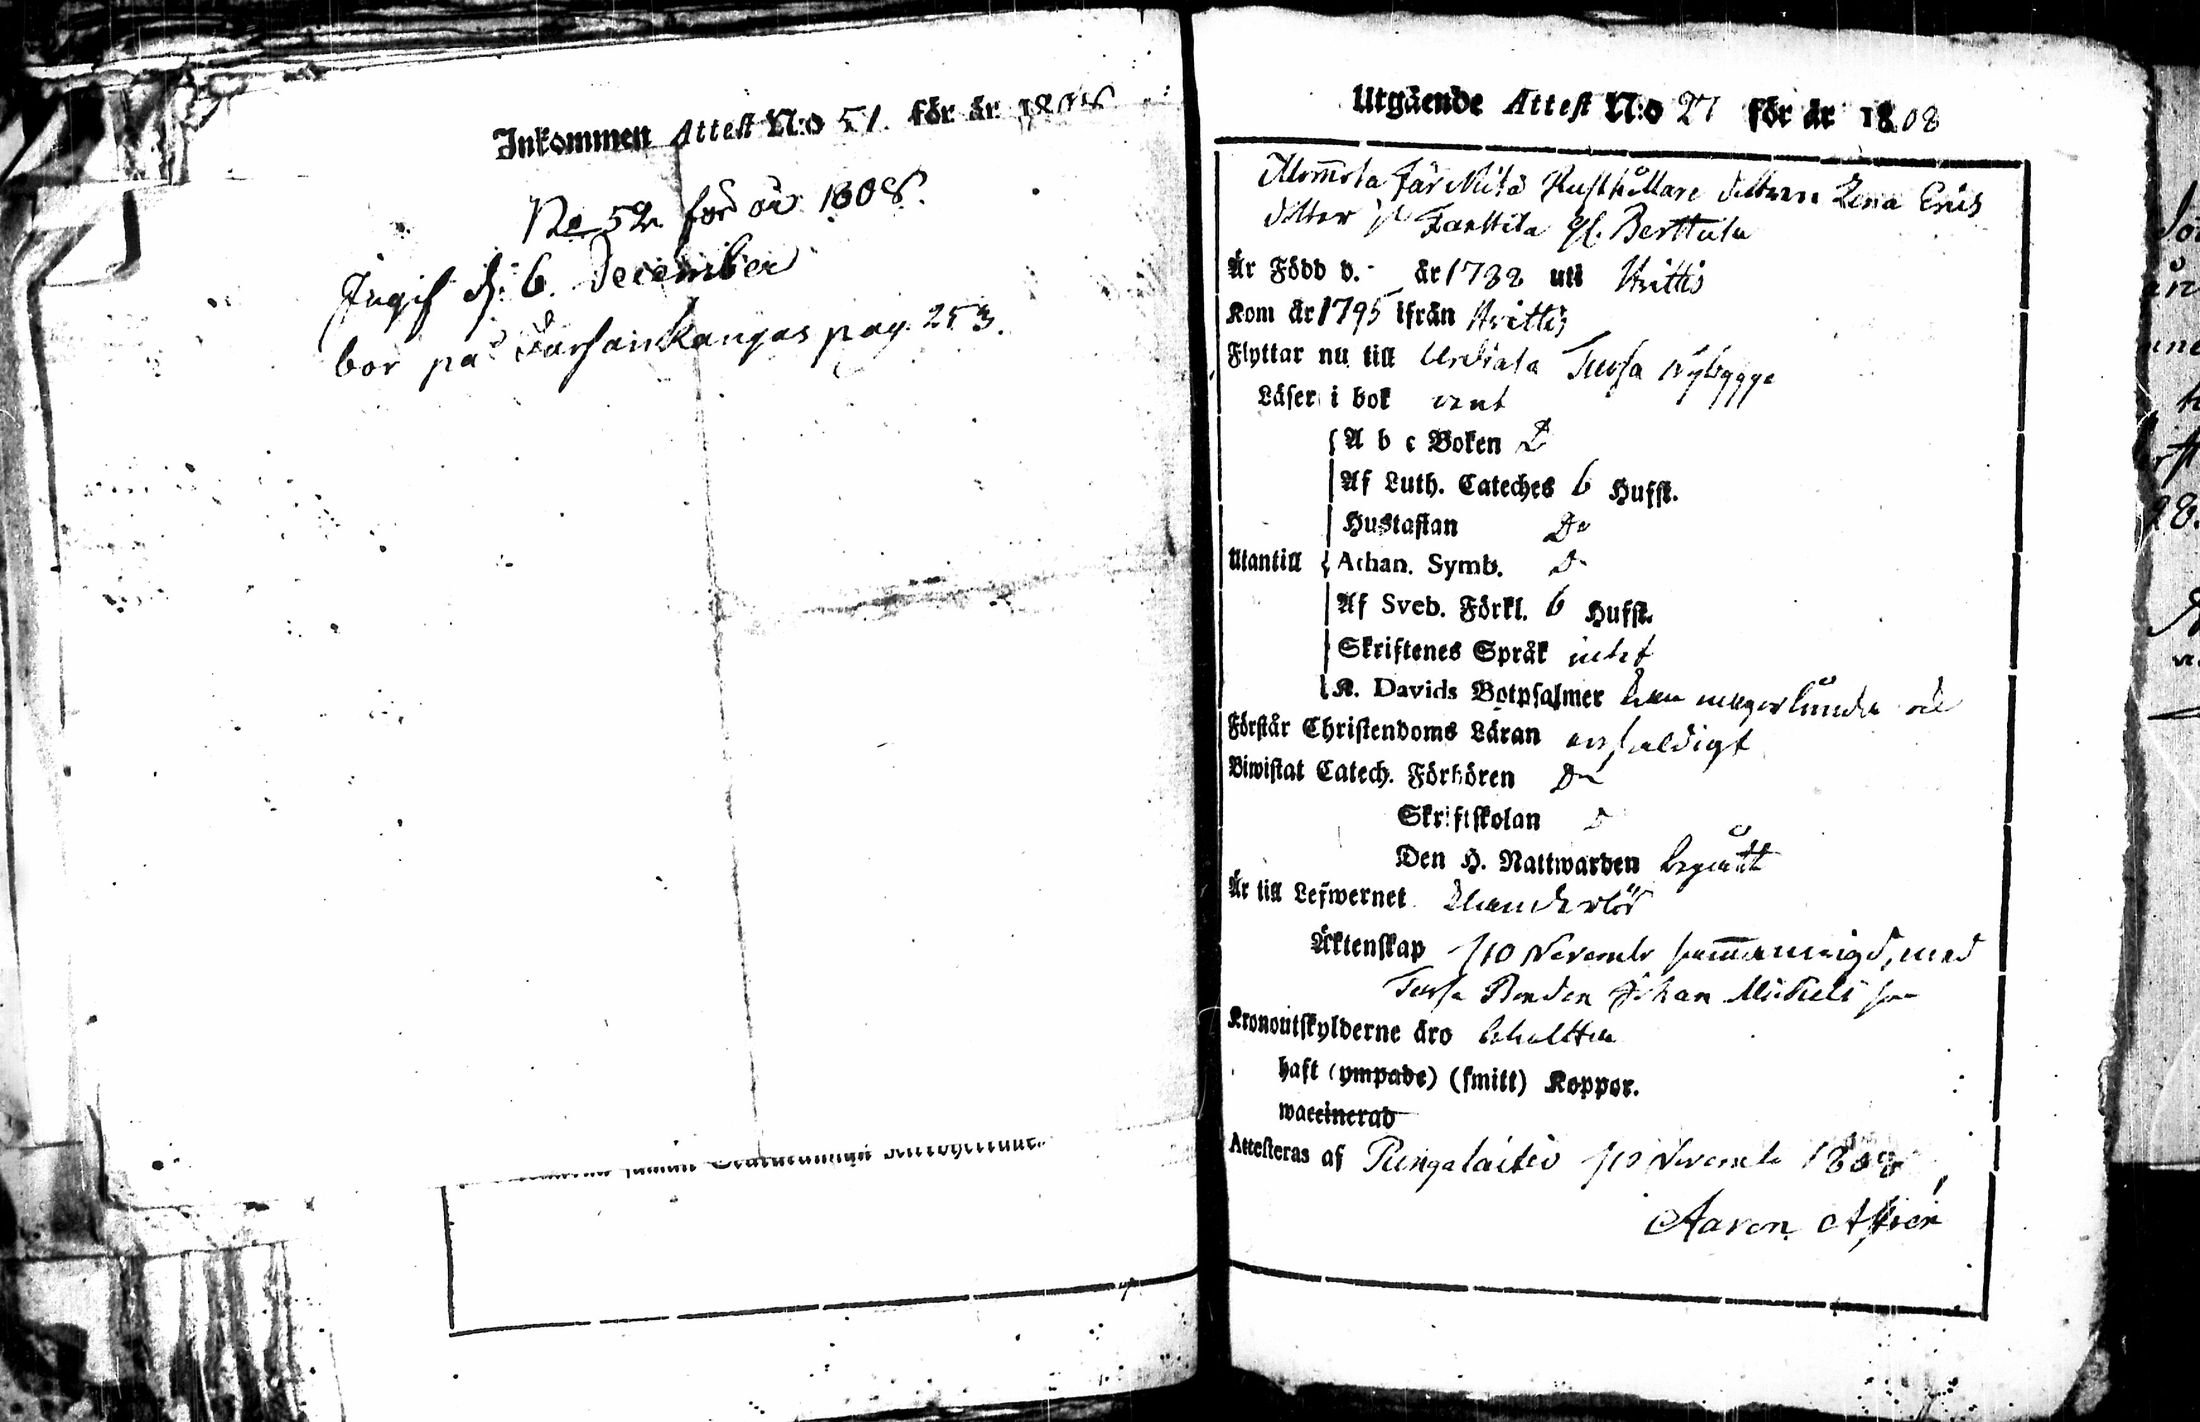 Inkommen Attest N:o 51. för år 1808
No 52 för år 1808.
Ingif d. 6. December
bor på pag. 253.
Utgående Attest N:o 27 för år 1808
Rusthållare Lena Erics
dotter Berttula
Är Född d. - år 1782 uti Hvittis
Kom år 1795 ifrån Hvittis
Flyttar nu till Urdiala Tursa nybygge
Läser i bok rent
A b c Boken D
Af Luth. Cateches 6 Hufst.
Hustaflan Do
Utantill Athan. Symb. Do
Af Sveb. Förkl. 6 Hufst.
Skriftenes Språk intet
K. Davids Botpsalmer någorlunda
Förstår Christendoms Läran enfaldigt
Biwistat Catech. Förhören Do
Skriftskolan D
Den H. Nattwarden begått
Är till Lefwernet klanderlös
Äktenskap /10 Novemb sammanvigd, med
Tursa Bonden Johan Mickels son
Kronoutskylderne äro betalte
haft (ympade) (smitt) Koppor.
waccinerad
Attesteras af Pungalaitio /10 Novemb 1808,
Aaron